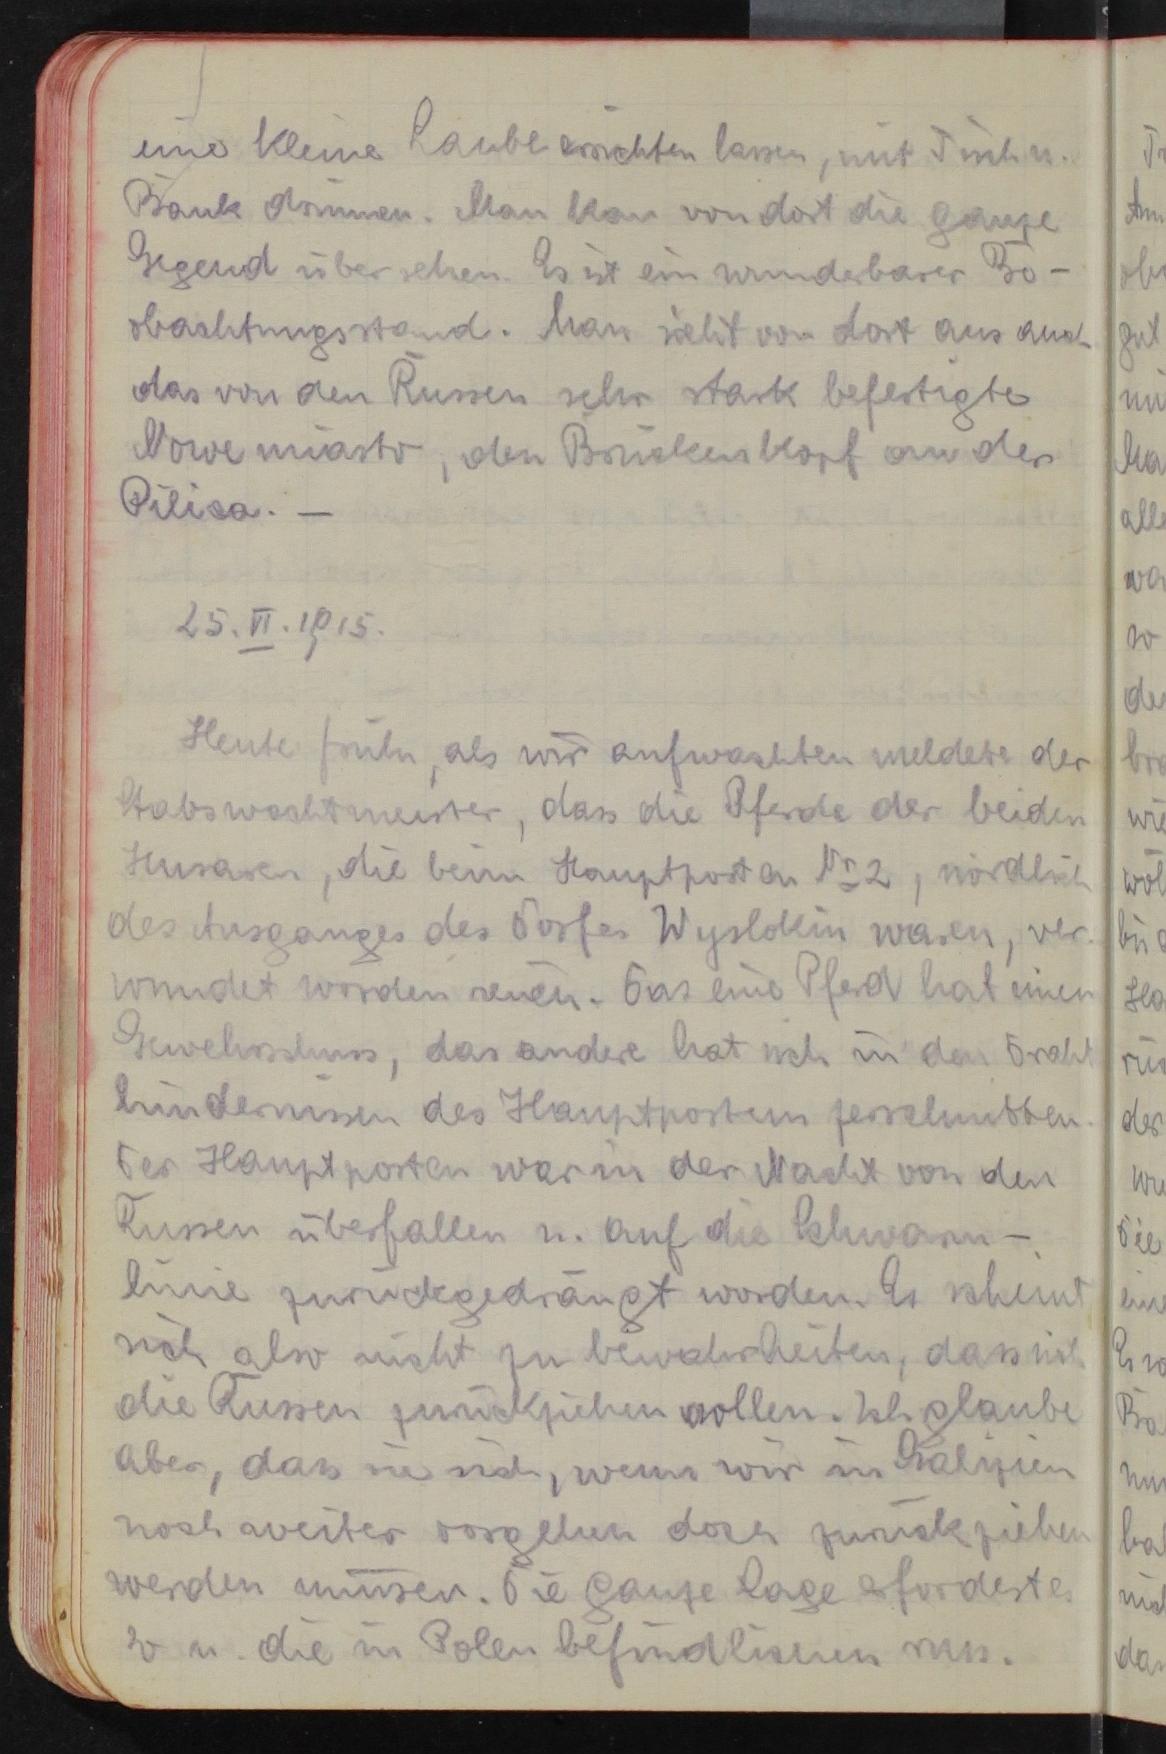 eine kleine Laube errichten lassen, mit Tisch u.
Bank drinnen. Man kan von dort die ganze
Gegend übersehen. Es ist ein wunderbarer Be-
obachtungsstand. Man sieht von dort aus auch
das von den Russen sehr stark befestigte
Nowe miasto, den Brückenkopf an der
Pilica. —
25. VI. 1915.
Heute früh, als wir aufwachten meldete der
Stabswachtmeister, dass die Pferde der beiden
Husaren, die beim Hauptposten Nr 2, nördlich
des Ausganges des Dorfes Wyslokin waren, ver-
wundet worden seien. Das eine Pferd hat einen
Gewehrschuss, das andere hat sich in den Draht
hindernissen des Hauptpostens zerschnitten.
Der Hauptposten war in der Nacht von den
Russen überfallen u. auf die Schwarm-
linie zurückgedrängt worden. Es scheint
sich also nicht zu bewahrheiten, dass sich
die Russen zurückziehen wollen. Ich glaube
aber, dass sie sich, wenn wir in Galizien
noch weiter vorgehen doch zurückziehen
werden müssen. Die ganze Lage erfordert es
so u. die in Polen befindlichen russ.